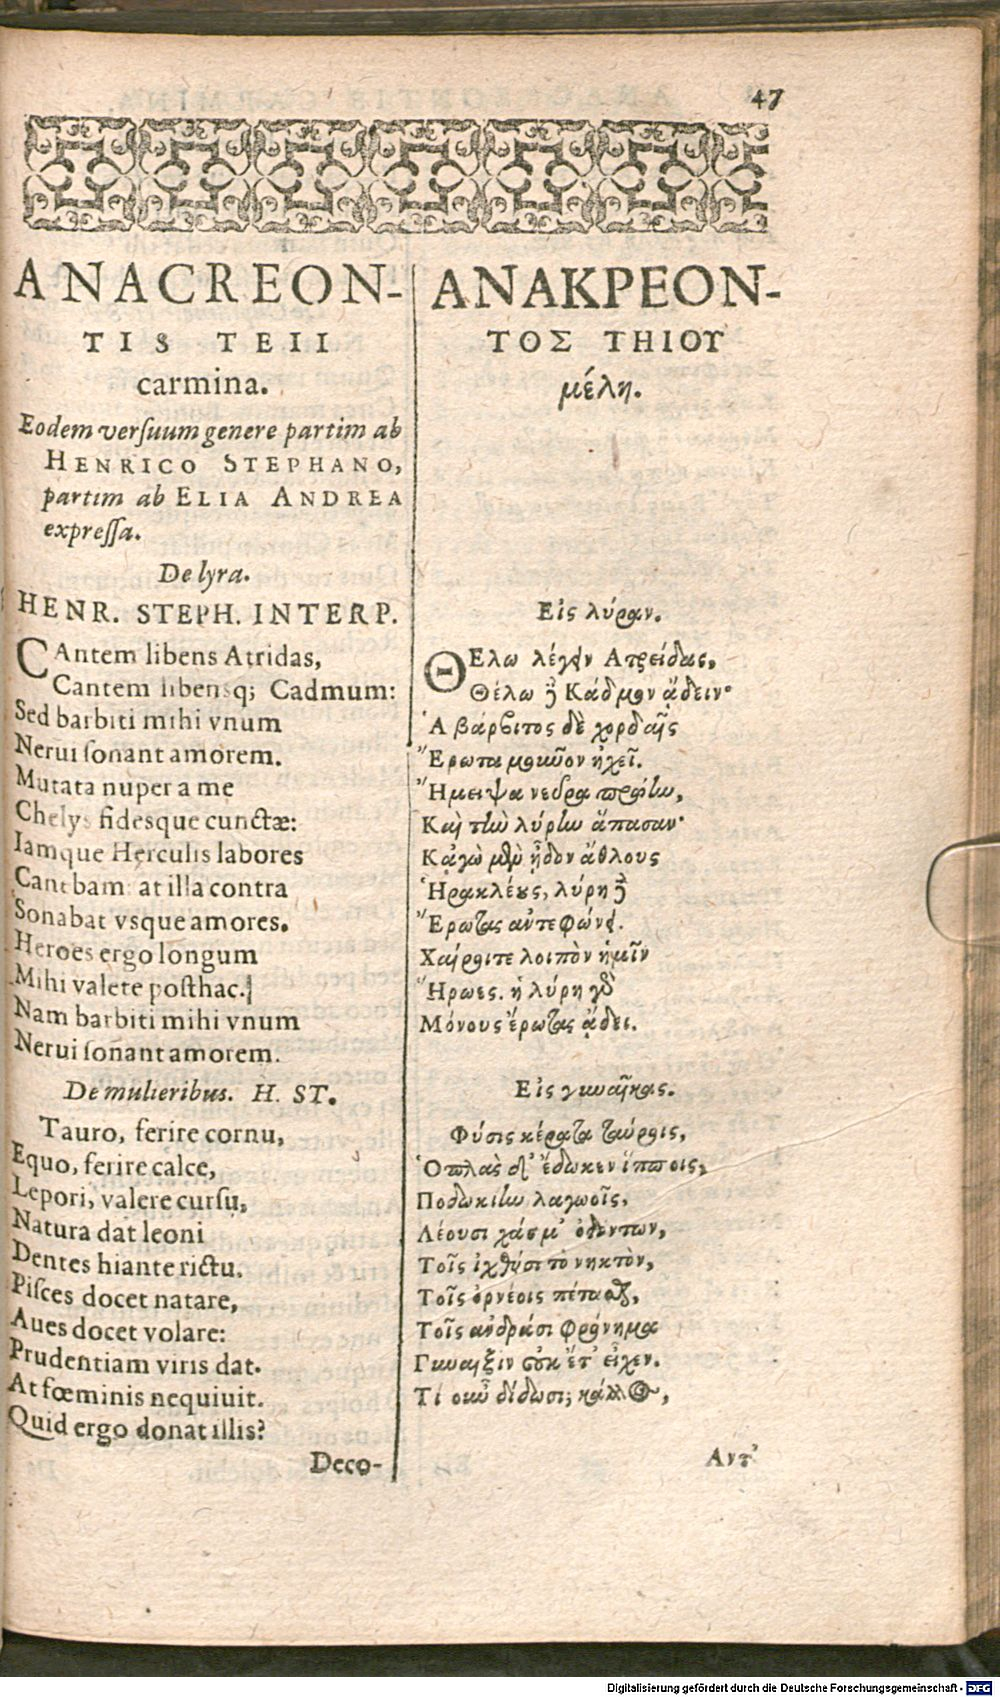 47
ANACREON-
TIS TEII
carmina.
Eodem verſuum genere partim ab
HENRICO STEPHANO,
partim ab ELIA ANDREA
expreſſa.
De lyra.
HENR. STEPH. INTERP.
CAntem libens Atridas,
Cantem libensq; Cadmum:
Sed barbiti mihi vnum
Nerui ſonant amorem.
Mutata nuper a me
Chelys fidesque cunctæ:
Iamque Herculis labores
Cantbam at illa contra
Sonabat vsque amores.
Heroes ergo longum
Mihi valete poſthac.
Nam barbiti mihi vnum
Nerui ſonant amorem.
De mulieribus. H. ST.
Tauro, ferire cornu,
Equo, ferire calce,
Lepori, valere curſu,
Natura dat leoni
Dentes hiante rictu.
Piſces docet natare,
Aues docet volare:
Prudentiam viris dat.
At fœminis nequiuit.
Quid ergo donat illis?
Deco-
ΑΝΑΚΡΕΟΝ-
ΤΟΣ ΤΗΙΟΥ
μέλη.
Εἰς λύραν.
ΘΕλω λέγειν Ατρείδας,
Θέλω ϗ̀ Κάδμον ᾄδειν·
Ἁ βάρβιτος δὲ χορδαῖς
Ἔρωτα μοῦνον ἠχεῖ.
Ἤμειψα νεῦρα πρώην,
Καὶ τὴν λύρην ἅπασαν·
Κᾀγὼ μὲν ᾖδον ἄθλους
Ἡρακλέους, λύρη ϗ̀
Ἔρωτας ἀντεφώνει.
Χαίροιτε λοιπὸν ἡμῖν
Ἥρωες. ἡ λύρη γὰρ
Μόνους ἔρωτας ᾄδει.
Εἰς γυναῖκας.
Φύσις κέρατα ταύροις,
Ὁπλὰς δ' ἔδωκεν ἵπποις,
Ποδωκίην λαγωοῖς,
Λέουσι χάσμ' ὀδόντων,
Τοῖς ἰχθύσι τὸ νηκτὸν,
Τοῖς ὀρνέοις πέτασθαι,
Τοῖς ἀνδράσι φρόνημα
Γυναιξὶν οὐκ ἔτ' εἶχεν.
Τί οὖν δίδωσι; κάλλος,
Αντ'
Digitalisierung gefördert durch die Deutsche Forschungsgemeinschaft - DFG